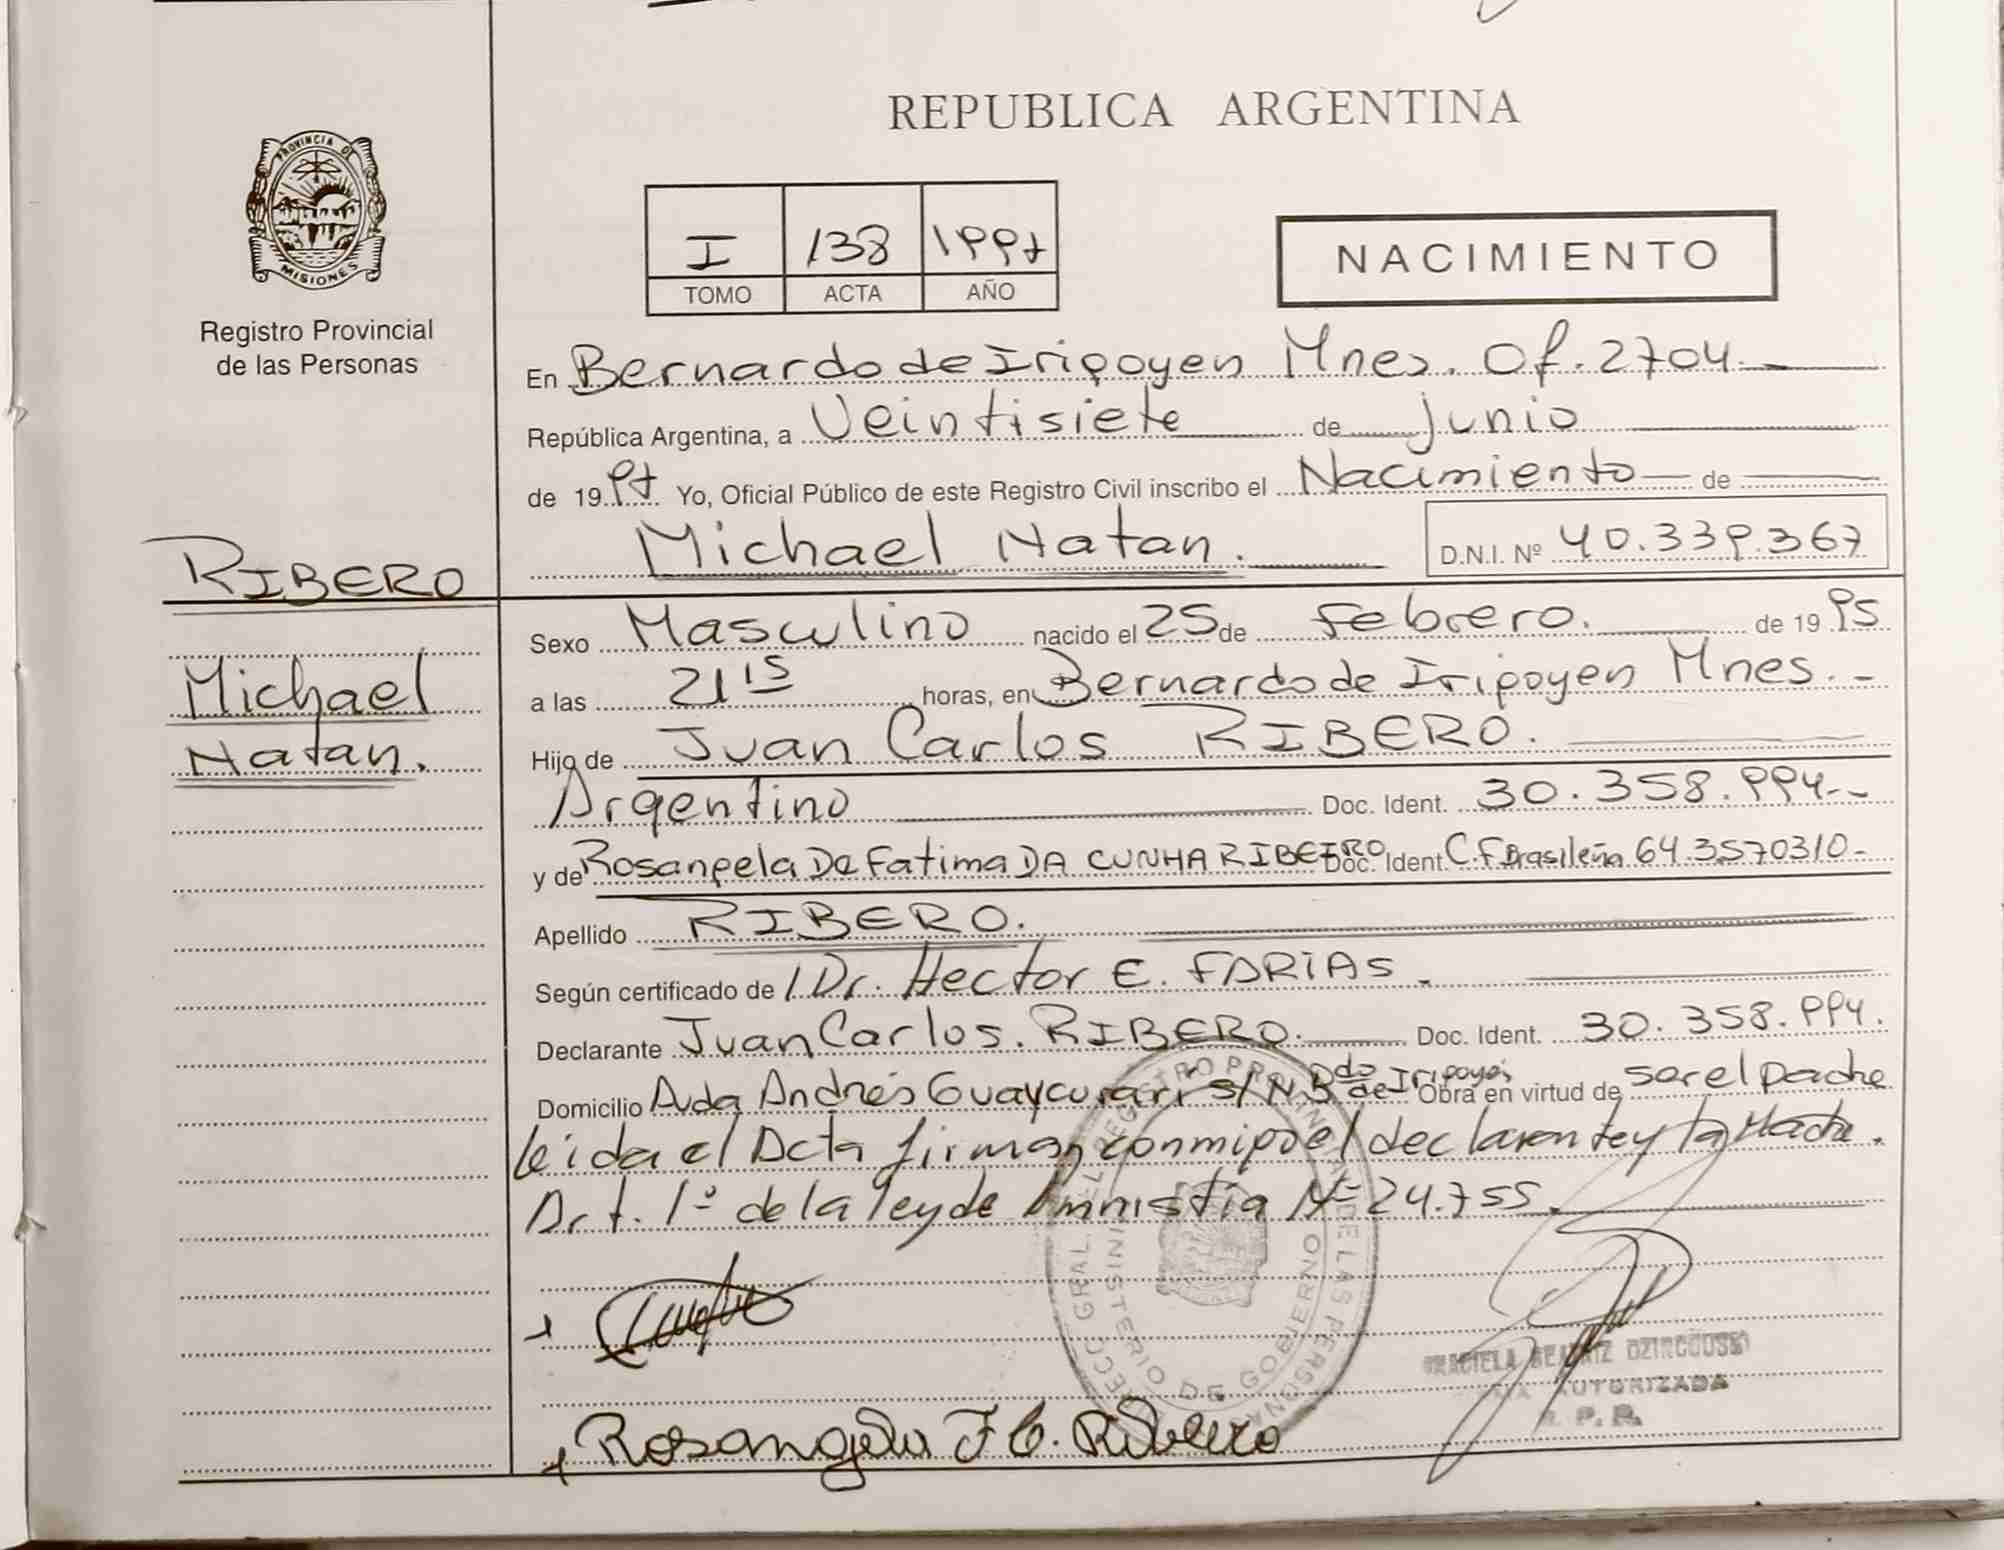 REPUBLICA ARGENTINA
PROVINCIA DE
MISIONES
Registro Provincial
de las Personas
I 138 1997
TOMO ACTA AÑO
NACIMIENTO
En Bernardo de Irigoyen Mnes. Of. 2704.
República Argentina, a Veintisiete de junio
de 1997 Yo, Oficial Público de este Registro Civil inscribo el Nacimiento de
Michael Natan. D.N.I. Nº 40.339.367
RIBERO
Michael
Natan.
Sexo Masculino nacido el 25 de Febrero. de 1995
a las 21 15 horas, en Bernardo de Irigoyen Mnes.-
Hijo de Juan Carlos RIBERO.
Argentino Doc. Ident. 30.358.994--
y de Rosangela De Fatima DA CUNHA RIBEIRO Doc. Ident. C.F Brasileña 643.570310-
Apellido RIBERO.
Según certificado de 1 Dr. Hector E. FARIAS.
Declarante Juan Carlos. RIBERO. Doc. Ident. 30.358.994.
Domicilio Avda Andrés Guaycurarí s/N.Bdo de Irigoyen Obra en virtud de ser el padre
leida el Acta firman conmigo el declarante y la Madre.
Art. 1º de la ley de Amnistía Nº 24.755.
DIRECC. GRAL. DEL REGISTRO PROVINCIAL DE LAS PERSONAS
MINISTERIO DE GOBIERNO
GRACIELA BEATRIZ DZIRCOUSKI
AUTORIZADA
R. P. P.
Rosangela F C. Ribeiro